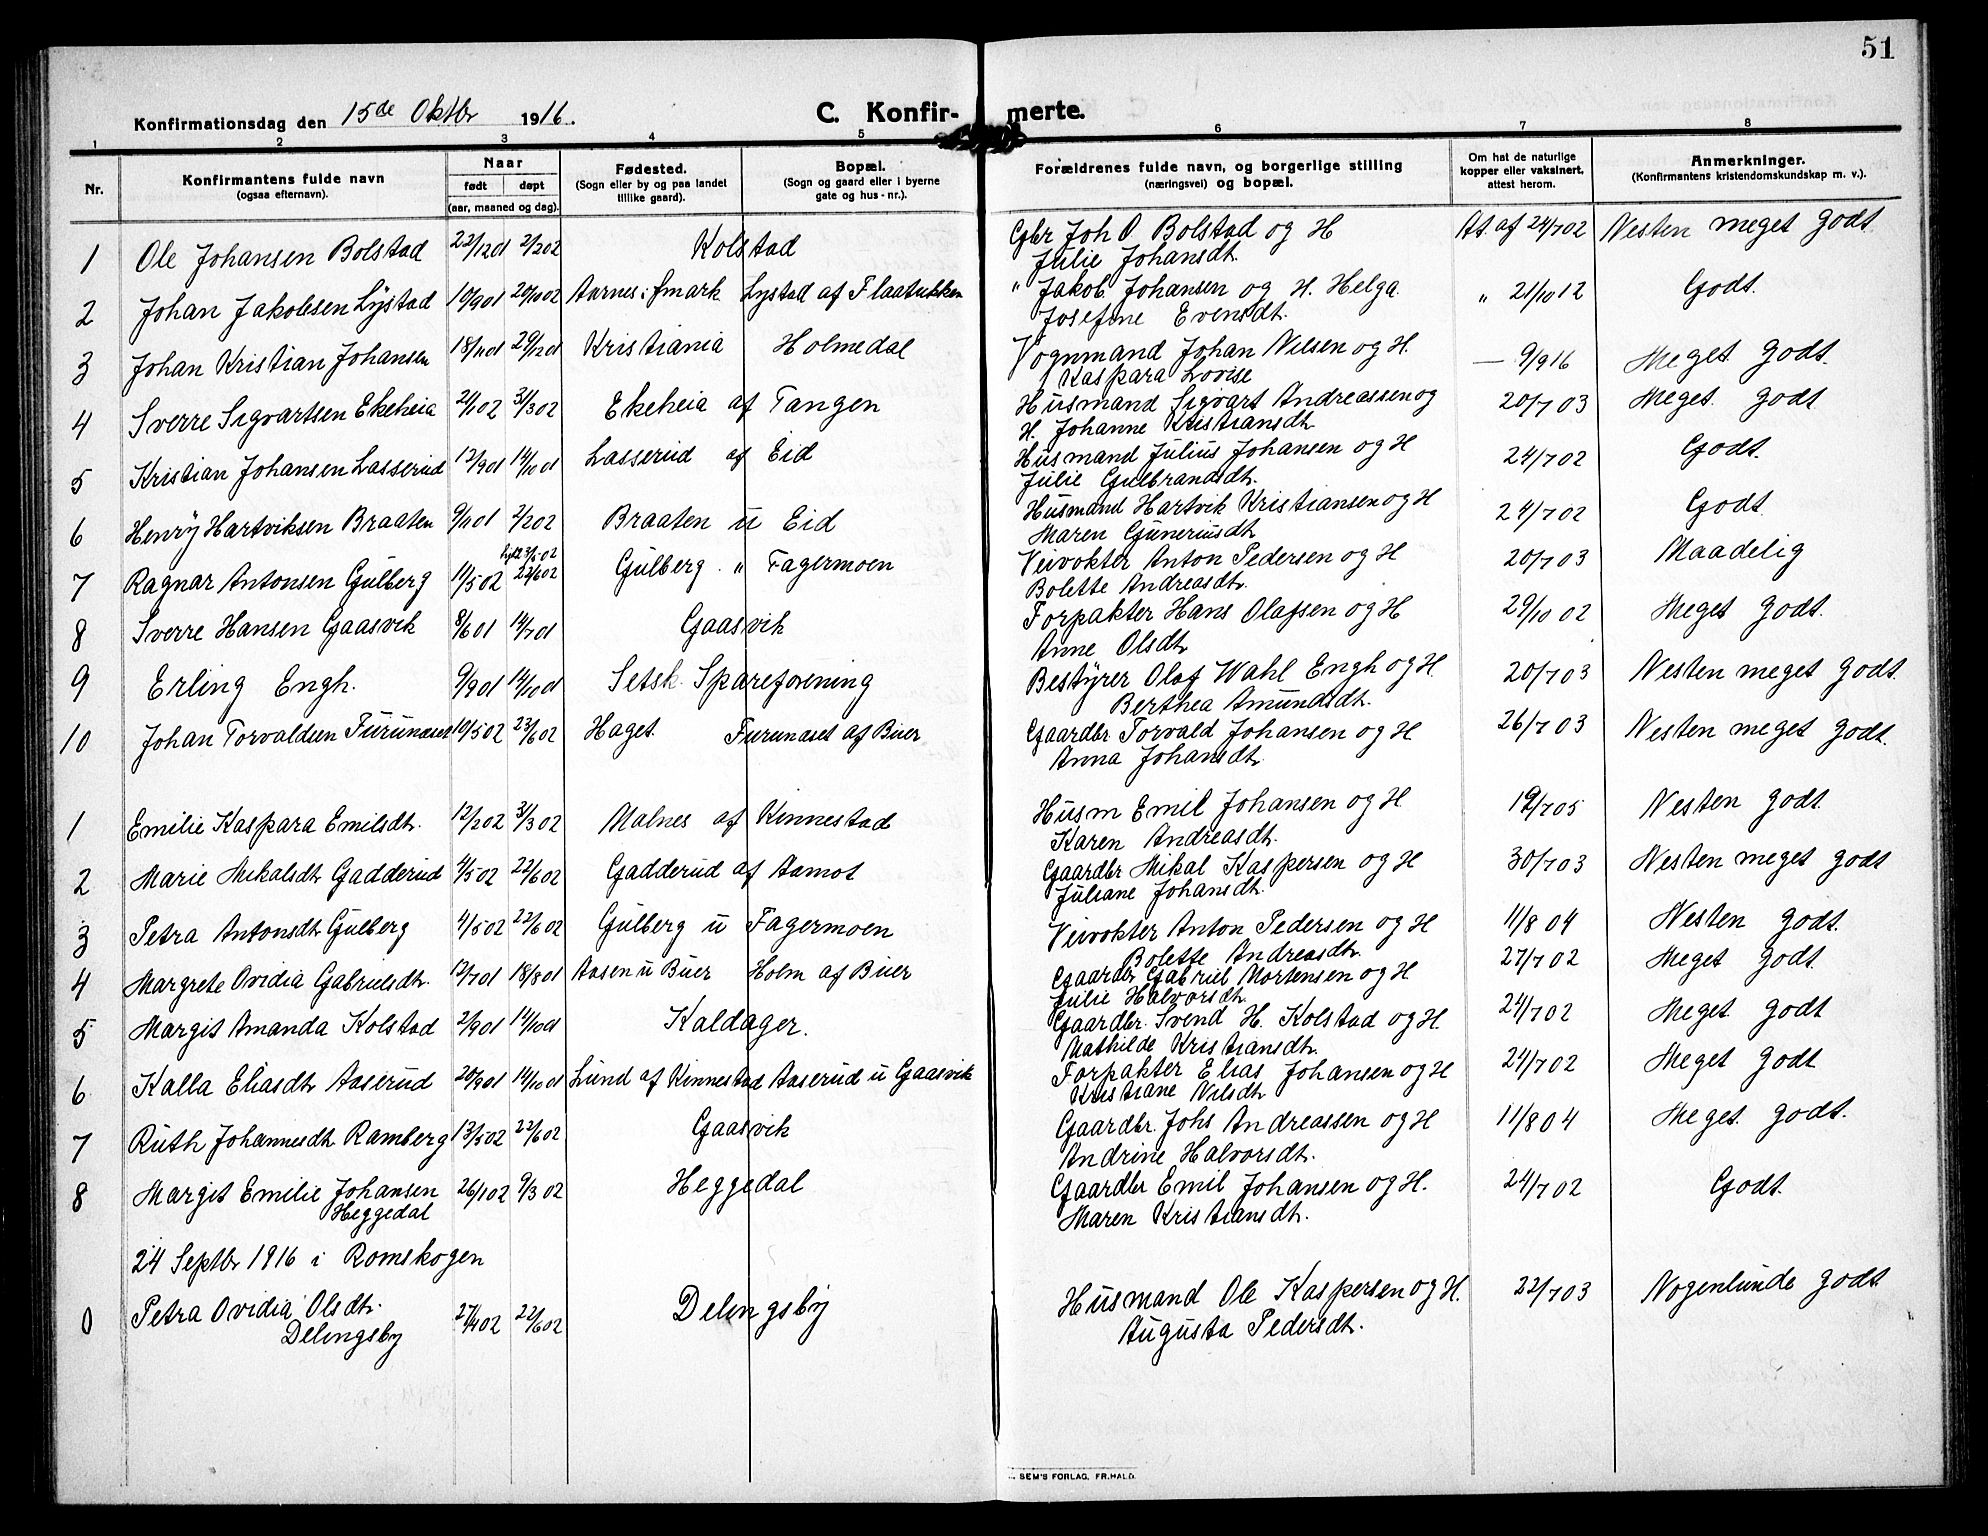 51
Konfirmationsdag den 15de Oktbr 1916. C. Konfir- merte.
1 2 3 4 5 6 7 8
Nr. Konfirmantens fulde navn (ogsaa efternavn). Naar født døpt (aar, maaned og dag). Fødested. (Sogn eller by og paa landet tillike gaard). Bopæl. (Sogn og gaard eller i byerne gate og hus-nr.). Forældrenes fulde navn, og borgerlige stilling (næringsvei) og bopæl. Om hat de naturlige kopper eller vaksinert, attest herom. Anmerkninger. (Konfirmantens kristendomskundskap m. v.).
1 Ole Johansen Bolstad 22/12 01 2/2 02 Kolstad Gbr Joh O. Bolstad og H At. af 24/7 02 Nesten meget godt
Julie Johansdt.
2 Johan Jakobsen Lystad 10/9 01 20/10 02 Aarnes i Smark Lystad af Flaatukken " Jakob Johansen og H. Helga " 21/10 12 Godt.
Josefine Evensdt.
3 Johan Kristian Johansen 18/11 01 29/12 01 Kristiania Holmedal Vognmand Johan Nilsen og H. — 9/9 16 Meget godt
Kaspara Lovise
4 Sverre Sigvartsen Ekeheia 2/1 02 31/3 02 Ekeheia af Tangen Husmand Sigvart Andreassen og 20/7 03 Meget godt
H. Johanne Kristiansdt
5 Kristian Johansen Lasserud 12/9 01 14/10 01 Lasserud af Eid Husmand Julius Johansen og H 24/7 02 Godt.
Julie Gulbrandsdt.
6 Henry Hartviksen Braaten 9/11 01 2/2 02 Braaten u Eid Husmand Hartvik Kristiansen og H 24/7 02 Godt
Maren Guneriusdt
7 Ragnar Antonsen Gulberg 11/5 02 23/6 02 Gulberg " Fagermoen Veivokter Anton Pedersen og H 20/7 03 Maadelig
Bolette Andreasdt.
8 Sverre Hansen Gaasvik 8/6 01 14/7 01 Gaasvik Forpakter Hans Olafsen og H 29/10 02 Meget godt.
Anne Olsdt
9 Erling Engh. 9/9 01 14/10 01 Setsk. Spareforening Bestyrer Olaf Wahl Engh og H. 20/7 03 Nesten meget godt.
Berthea Amundsdt.
10 Johan Torvaldsen Furunæset 10/5 02 23/6 02 Haget. Furunæset af Buer Gaardbr Torvald Johansen og H 26/7 03 Nesten meget godt.
Anna Johansdt.
1 Emilie Kaspara Emilsdt. 12/2 02 31/3 02 Malnes af Kinnestad Husm Emil Johansen og H 19/7 05 Nesten godt
Karen Andreasdt.
2 Marie Mikalsdt Gadderud 4/5 02 22/6 02 Gadderud af Aamot Gaardbr Mikal Kaspersen og H 30/7 03 Nesten meget godt
Juliane Johansdt.
3 Petra Antonsdt Gulberg 4/5 02 22/6 02 Gulberg u Fagermoen Veivokter Anton Pedersen og H 11/8 04 Nesten godt.
Bolette Andreasdt.
4 Margrete Ovidia Gabrielsdt. 12/7 01 18/8 01 Aasen u Buer Holm af Buer Gaardbr Gabriel Mortensen og H 27/7 02 Meget godt.
Julie Halvorsdt
5 Margit Amanda Kolstad 2/9 01 14/10 01 Kaldager. Gaardbr. Svend H. Kolstad og H. 24/7 02 Meget godt
Mathilde Kristiansdt.
6 Kalla Eliasdt Aaserud 20/9 01 14/10 01 Lund af Kinnestad Aaserud u Gaasvik Forpakter Elias Johansen og H 24/7 02 Meget godt
Kristiane Nilsdt
7 Ruth Johannesdt Ramberg 13/5 02 22/6 02 Gaasvik Gaardbr. Johs Andreassen og H 11/8 04 Meget. godt.
Andrine Halvorsdt.
8 Margit Emilie Johansen 26/1 02 9/3 02 Heggedal Gaardbr Emil Johansen og H. 24/7 02 Godt.
Heggedal Maren Kristiansdt.
24 Septbr 1916 i Romskogen
0 Petra Ovidia Olsdt. 27/4 02 22/6 02 Delingsby Husmand Ole Kaspersen og H. 22/7 03 Nogenlunde godt
Delingsby Augusta Pedersdt.
SEM'S FORLAG, FR.HALD.